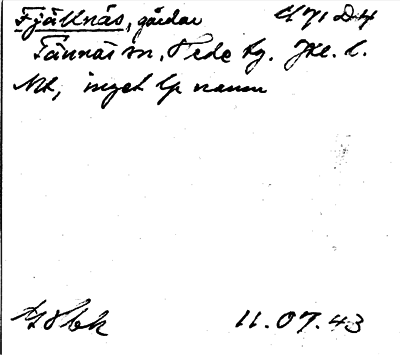 Fjällnäs, gårdar 471 D4
Tännäs sn, Hede tg. Jtl. l.
Mt, inget lp namn
11.07.43